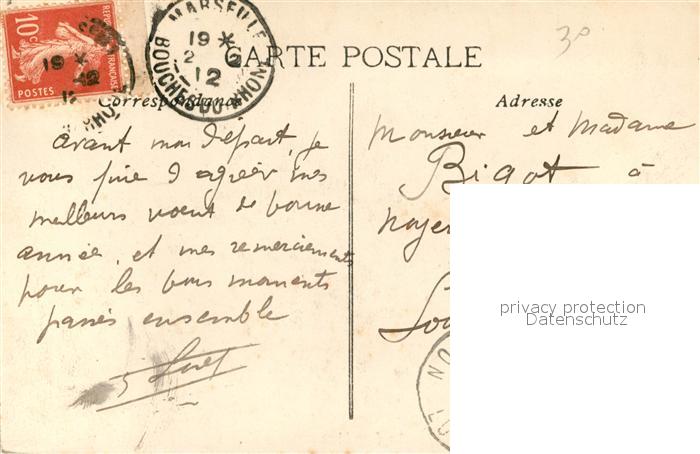 10c
RÉPUBLIQUE FRANÇAISE
POSTES
MARSEILLE
19 *
2
12
BOUCHES-DU-RHONE
30
CARTE POSTALE
Correspondance
Adresse
avant mon départ, je
vous prie d'agréer mes
meilleurs voeux de bonne
année, et mes remerciements
pour les bons moments
passés ensemble
Monsieur et Madame
Bigot à
privacy protection
Datenschutz